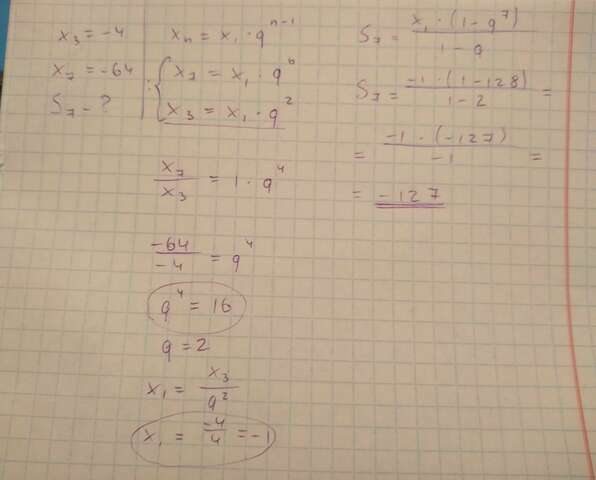 x₃ = -4
x₇ = -64
S₇ - ?
xₙ = x₁ · q^(n-1)
: { x₇ = x₁ · q⁶
x₃ = x₁ · q²
x₇/x₃ = 1 · q⁴
-64/-4 = q⁴
q⁴ = 16
q = 2
x₁ = x₃/q²
x₁ = -4/4 = -1
S₇ = x₁ · (1 - q⁷)/1 - q
S₇ = -1 · (1 - 128)/1 - 2 =
= -1 · (-127)/-1 =
= -127